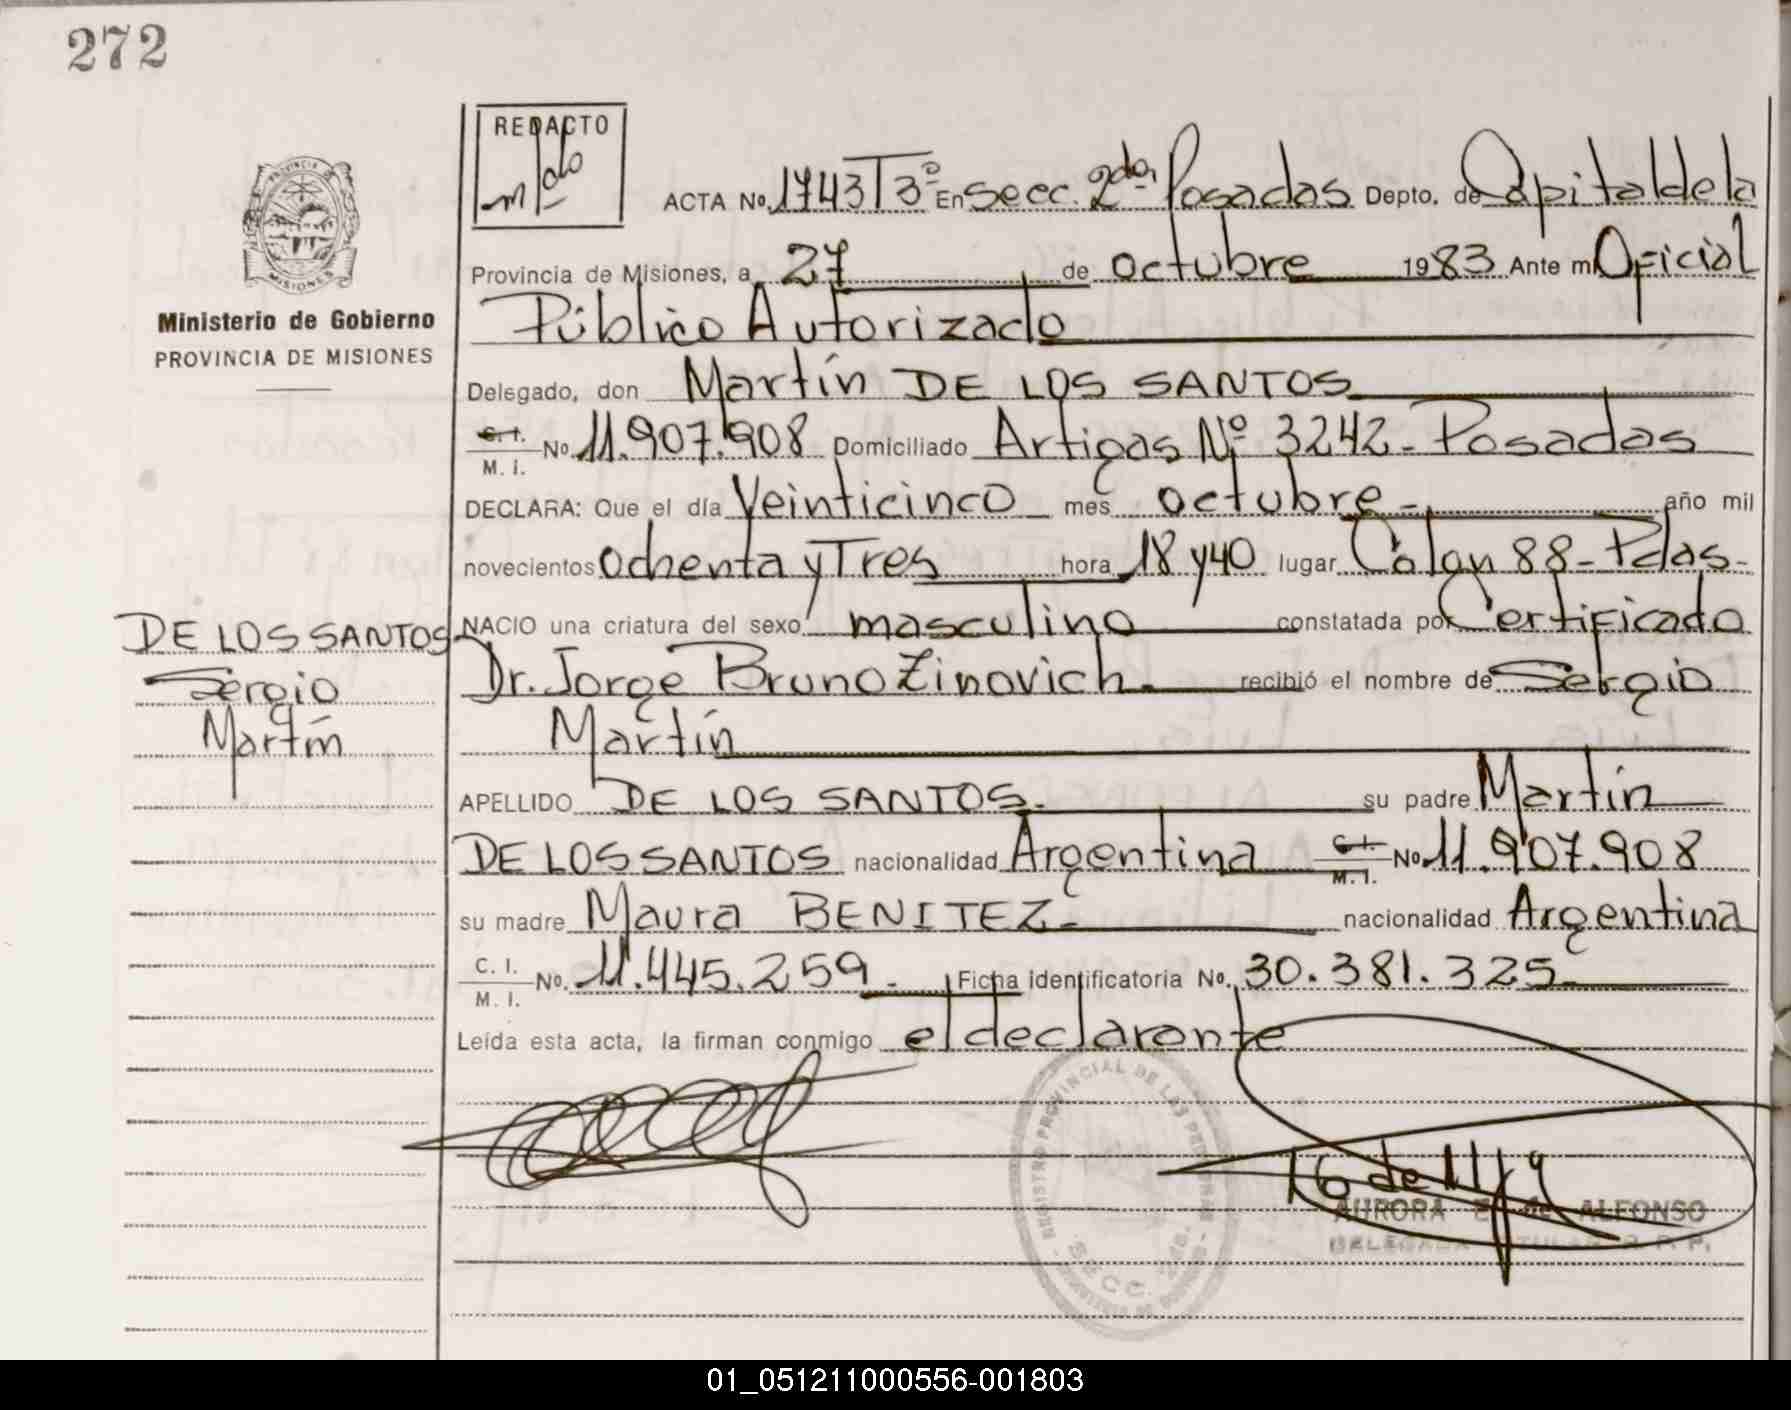 272
REDACTO
ACTA No. 1743 T 3º En Secc. 2da. Posadas Depto. de Capital de la
Provincia de Misiones, a 27 de octubre 1983 Ante mi Oficial
Público Autorizado
Ministerio de Gobierno
PROVINCIA DE MISIONES
Delegado, don Martín DE LOS SANTOS
C. I.
M. I. No. 11.907.908 Domiciliado Artigas Nº 3242 - Posadas
DECLARA: Que el día Veinticinco mes octubre - año mil
novecientos ochenta y Tres hora 18 y 40 lugar Colon 88 - Pdas.
NACIO una criatura del sexo masculino constatada por Certificado
Dr. Jorge Bruno Zinovich. recibió el nombre de Sergio
Martín
DE LOS SANTOS
Sergio
Martín
APELLIDO DE LOS SANTOS. su padre Martín
DE LOS SANTOS nacionalidad Argentina C. I. No. 11.907.908
M. I.
su madre Maura BENITEZ - nacionalidad Argentina
C. I.
M. I. No. 11.445.259 - Ficha identificatoria No. 30.381.325
Leída esta acta, la firman conmigo el declarante
REGISTRO PROVINCIAL DE LAS PERSONAS
SECC. 2da.
AURORA E. de ALFONSO
DELEGADA TITULAR R. P. P.
01_051211000556-001803